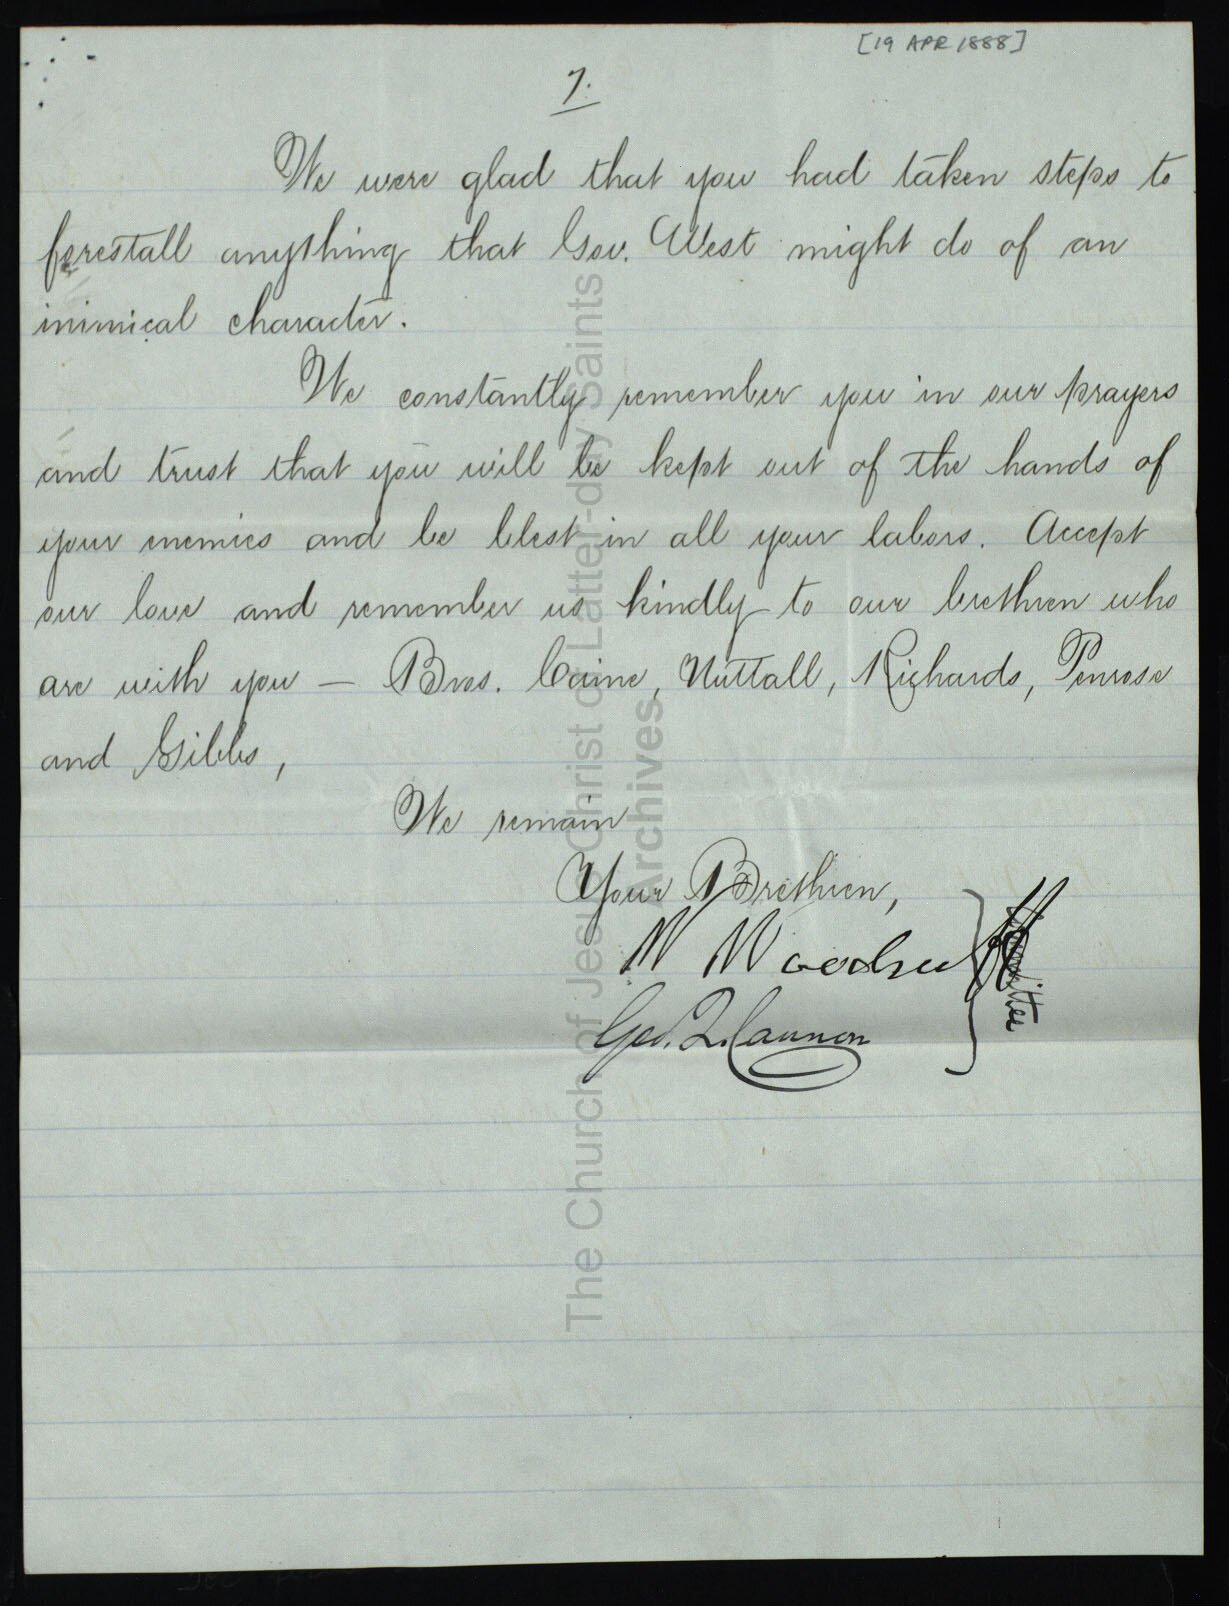 [19 APR 1888]
7.
We were glad that you had taken steps to
forestall anything that Gov. West might do of an
inimical character.
We constantly remember you in our prayers
and trust that you will be kept out of the hands of
your enemies and be blest in all your labors. Accept
our love and remember us kindly to our brethren who
are with you — Bros. Caine, Nuttall, Richards, Penrose
and Gibbs,
We remain
Your Brethren,
W Woodruff
Geo. Q. Cannon
The Church of Jesus Christ of Latter-day Saints
Archives